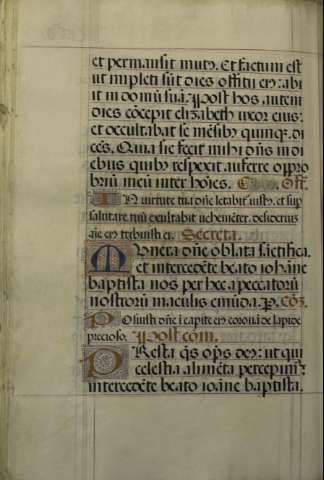 et permansit mutꝰ. Et factum est
ut impleti sūt dies offitii eiꝰ: abi
it in domū suā. Post hos autem
dies cōcepit elizabeth uxor eius:
et occultabat se mēsibꝰ quinqꝫ. di
cēs. Quia sic fecit mihi dn̄s in di
ebus quibꝰ respexit auferre oppro
briū meū inter hoīes. Off.
In uirtute tua dn̄e letabit iustꝰ. et sup
salutare tuū exultabit uehemēter. desideriū
aīe eiꝰ tribuisti ei. Secreta.
Munera dn̄e oblata sāctifica.
et intercedēte beato iohāne
baptista nos per hec a peccatorū
nostrorū maculis emūda. P. Cōꝫ.
Posuisti dn̄e ī capite eiꝰ coronā de lapide
precioso. Post com.
Presta qs op̄s deꝰ: ut qui
celestia alimēta percepimꝰ:
intercedēte beato ioāne baptista.